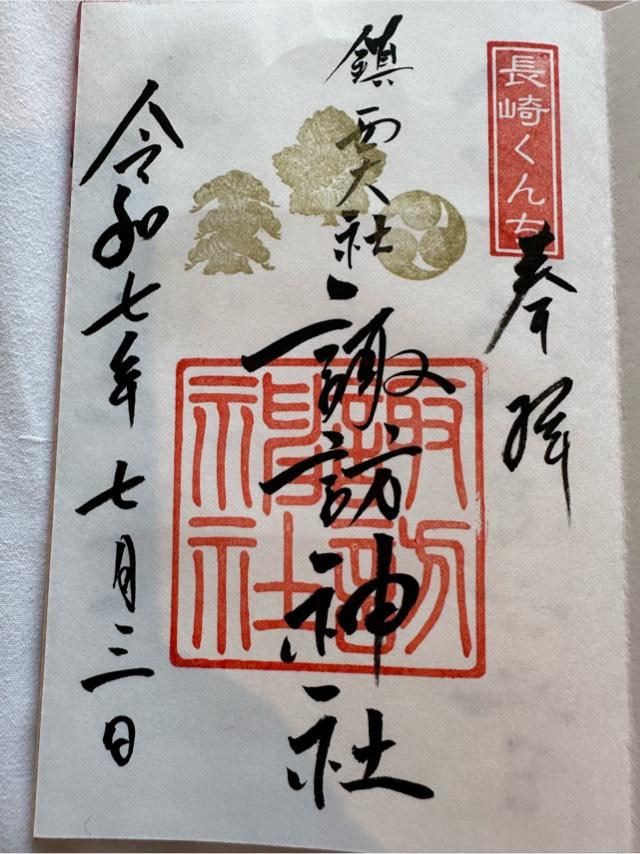 長崎くんち
奉拝
鎮西大社
諏訪神社
諏訪神社
令和七年七月三日